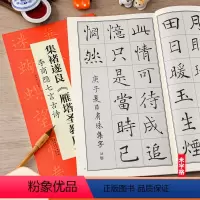 集褚遂良《雁塔圣教序》
李商隐七言古诗
田日暖玉生煙
此情可待成追
憶只是當時已
惘然
米字格
粉象优品